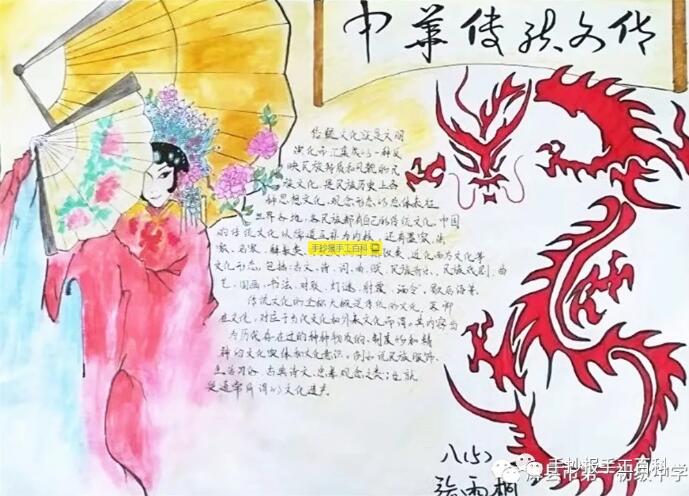 中华传统文化
传统文化就是文明
演化而汇集成的一种反
映民族特质和风貌的民
族文化,是民族历史上各
种思想文化、观念形态的总体表征
世界各地,各民族都有自己的传统文化,中国
的传统文化以儒道互补为内核,还有墨家、法
家、名家、
手抄报手工百科
文化形态,包括:古文、诗、词、曲、赋、民族音乐、民族戏剧、曲
艺、国画、书法、对联、灯谜、射覆、酒令、歇后语等。
传统文化的全称大概是传统的文化,
在文化,对应于当代文化和外来文化而谓。其内容当
为历代存在过的种种物质的、制度的和精
神的文化实体和文化意识。例如说民族服饰、
生活习俗、古典诗文、忠孝观念之类;也就
是通常所谓的文化遗产
八(5)
张雨桐
手抄报手工百科
第一初级中学